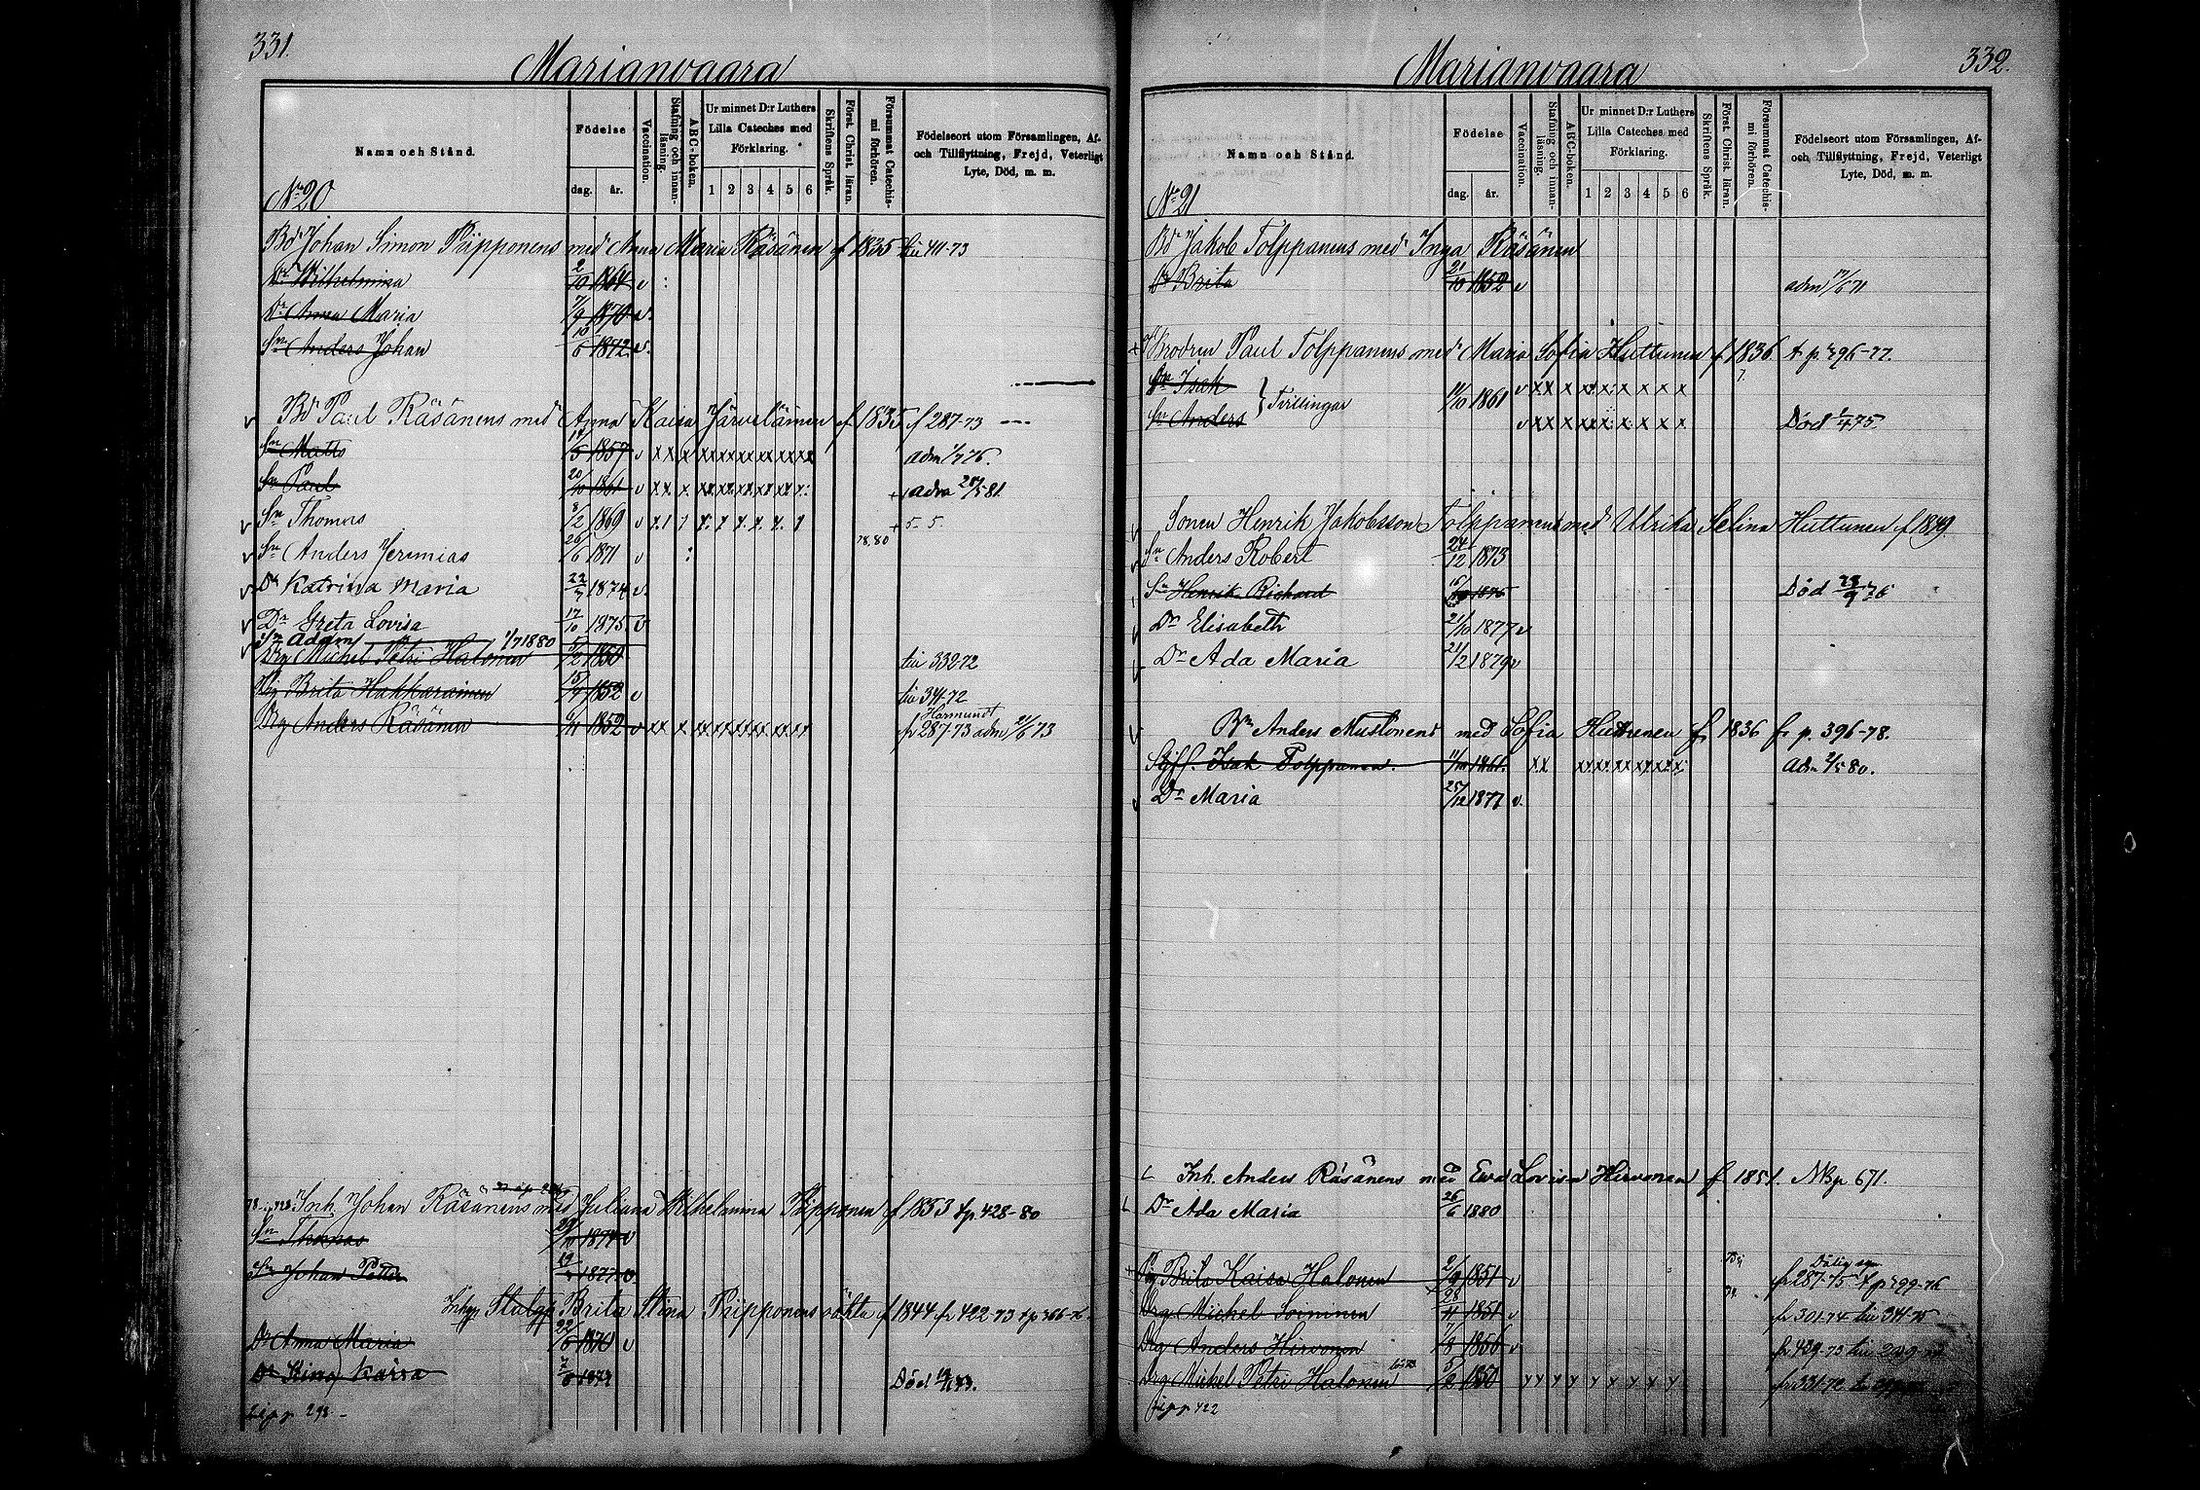 331.
Marianvaara
Namn och Stånd.
Födelse
dag. år.
Vaccination.
Stafning och innanläsning.
ABC-boken.
Ur minnet D:r Luthers Lilla Cateches med Förklaring.
1 2 3 4 5 6
Skriftens Språk.
Först. Christ. läran.
Försummat Catechismi förhören.
Födelseort utom Församlingen, Af- och Tillflyttning, Frejd, Veterligt Lyte, Död, m. m.
No 20
Bd Johan Simon Piipponens med Anna Maria Räsänen f 1835 till 411-73
Dr Wilhelmina 2/10 1864 v
Dr Anna Maria 7/9 1870 v.
Sn Anders Johan 10/6 1872 v.
Bd Paul Räsänens med Anna Kaisa Järveläinen f 1835 f 287-73
Sn Matts 17/5 1857 v x x x x x x x x x x x
Sn Paul 20/10 1861 v x x x x x x x x x adm 29/5 81
Sn Thomas 3/2 1869 v
+ 5. 5.
Sn Anders Jeremias 26/6 1871 v 78.80
Dr Katrina Maria 22/7 1874 v.
Dr Greta Lovisa 17/10 1875 v
Sn Adam 1/7 1880
Drg Michel Petri Halonen 5/2 1850 till 332-72
Pig Brita Hakkarainen 15/9 1852 v till 341-72
Drg Anders Räsänen 6/11 1852 v x x x x x x x x x fr 287-73 adm 21/6 73
Inh Johan Räsänens med Juliana Wilhelmina Piipponen f 1853 tp 428-80
Sn Thomas 29/10 1874 v
Sn Johan Petter 19/ 1877 v.
Inhys Brita Stina Piipponens oäkta f 1844 fr 422-73 tp 366-76
Dr Anna Maria 22/6 1870 v
Dr Stina Kaisa 7/6 1873 Död
332.
Marianvaara
Namn och Stånd.
Födelse
dag. år.
Vaccination.
Stafning och innanläsning.
ABC-boken.
Ur minnet D:r Luthers Lilla Cateches med Förklaring.
1 2 3 4 5 6
Skriftens Språk.
Först. Christ. läran.
Försummat Catechismi förhören.
Födelseort utom Församlingen, Af- och Tillflyttning, Frejd, Veterligt Lyte, Död, m. m.
No 21
Bd Jakob Tolppanens med Inga Räsänen
Dr Brita 21/10 1852 v adm 17/6 71
Brodren Paul Tolppanens med Maria Sofia Huttunen f 1836. t p 296-77.
Sn Isak } Tvillingar 11/10 1861 v x x x x x x x x x
Sn Anders v x x x x x x x x x Död 75.
Sonen Henrik Jakobsson Tolppanens med Ulrika Selina Huttunen f 1849
Sn Anders Robert 24/12 1873
Sn Henrik Richard Död 28/9 76
Dr Elisabeth 21/10 1877 v
Dr Ada Maria 21/2 1879 v
Bn Anders Mustonens med Sofia Huttunen f. 1836 fr p. 396-78.
Styfs. Isak Tolppanen. 11/10 1861. x x x x x x x x x adm 2/5 80.
Dr Maria 25/12 1877 v.
Inh. Anders Räsänens med Eva Lovisa Hirvonen f 1851. NBp 671.
Dr Ada Maria 26/6 1880
Pig Brita Kaisa Halonen 2/9 1851 v fr 287-75 tp 299-76
Drg Michel Soininen 28/11 1851 v fr 301-74 till 341-75
Drg Anders Hirvonen 7/8 1856 v fr 429-73
Drg Michel Petri Halonen 5/2 1850 fr 331-72